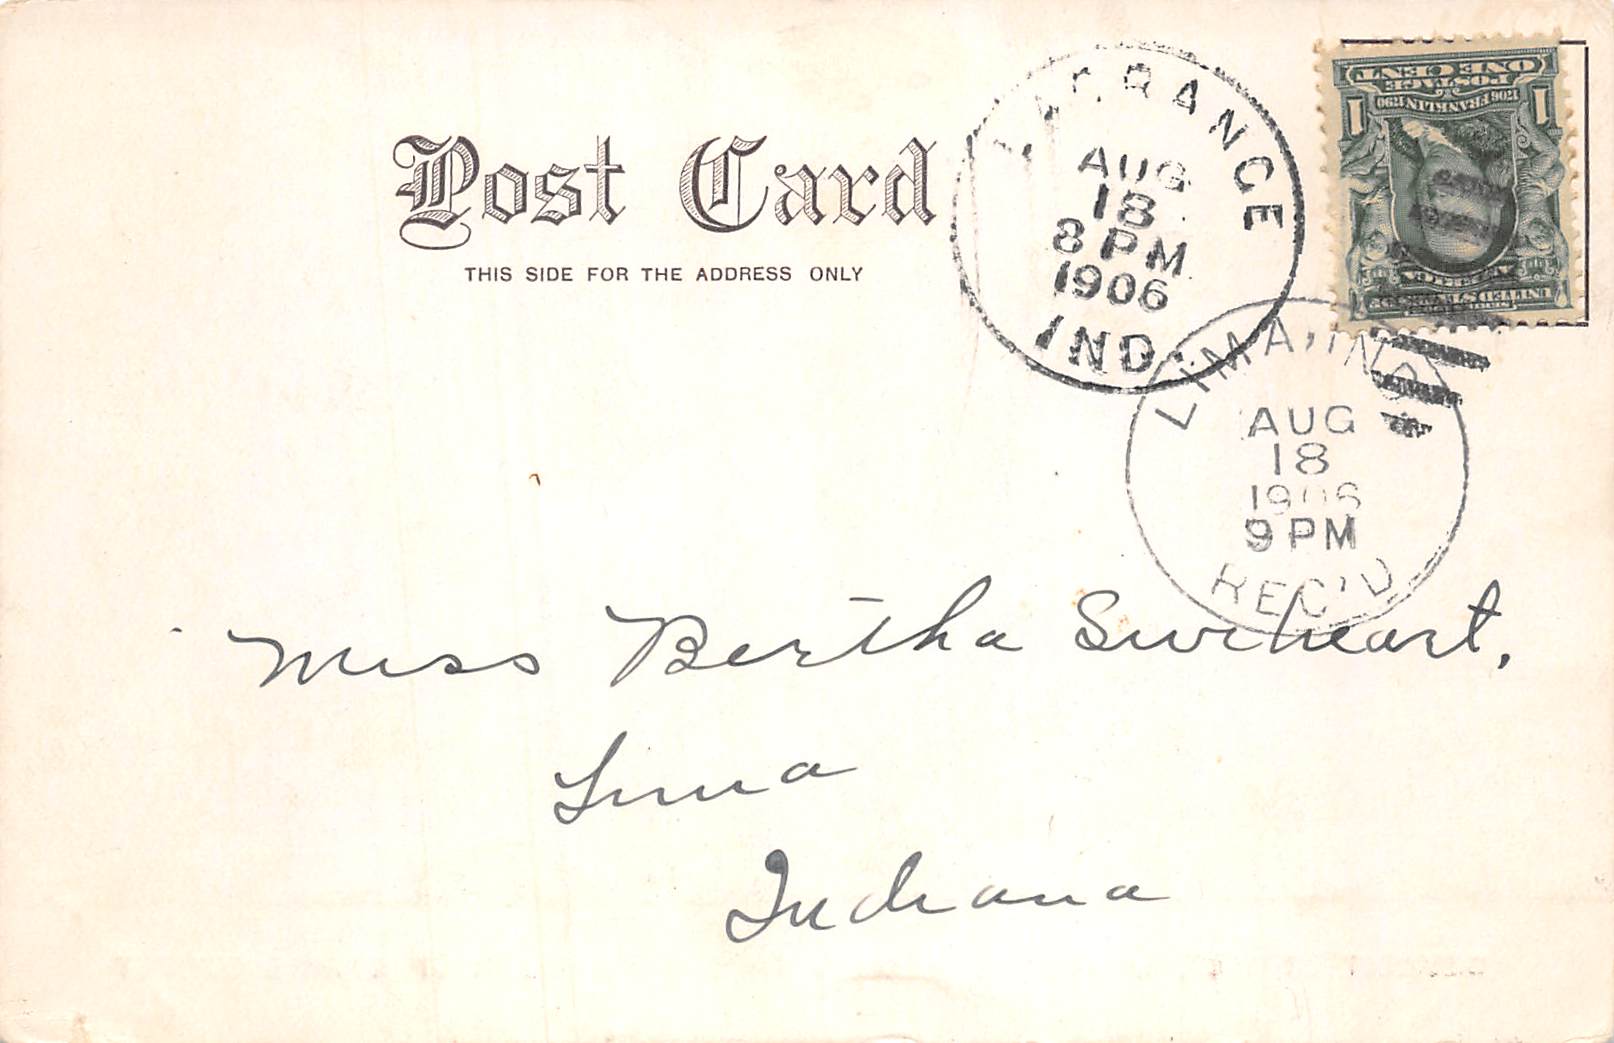 Post Card
THIS SIDE FOR THE ADDRESS ONLY
LAGRANGE
AUG
18
8 PM
1906
IND.
ONE CENT
POSTAGE
1706 FRANKLIN 1790
1 1
UNITED STATES
LIMA, IND
AUG
18
1906
9 PM
REC'D
Miss Bertha Swiheart,
Lima
Indiana